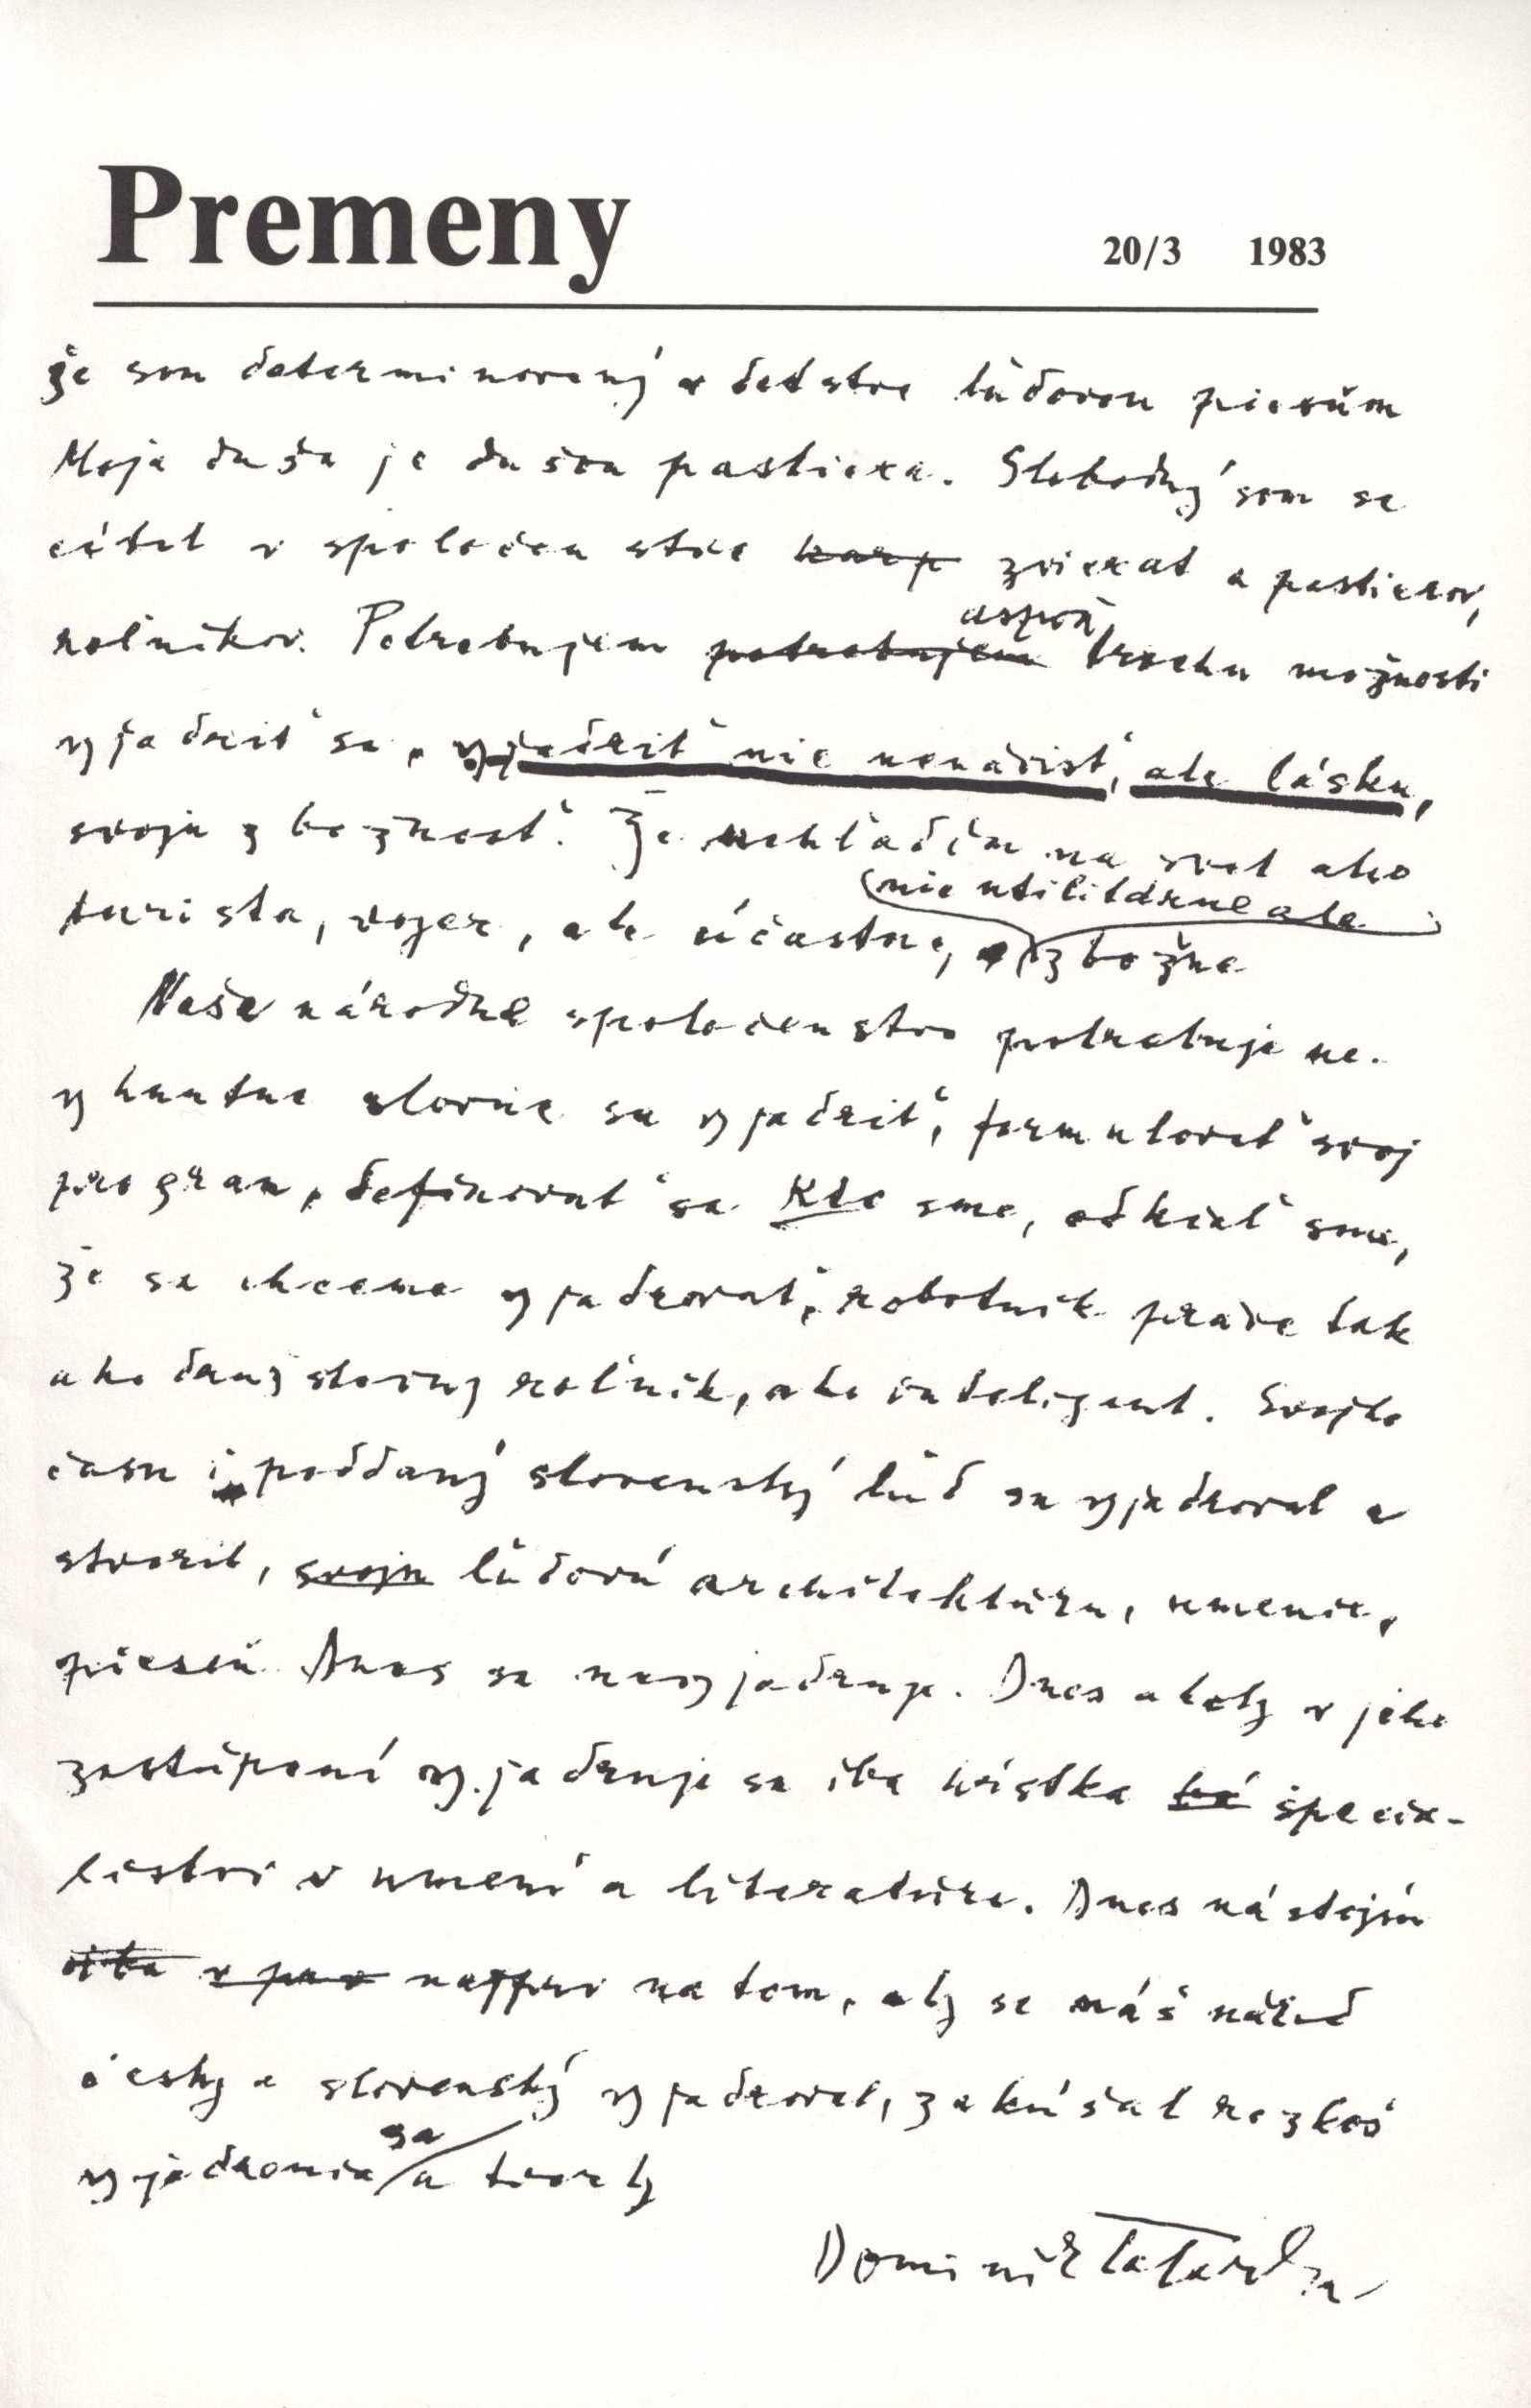 Premeny
20/3 1983
že som determinovaný v detstve ľudovou piesňou
Moja duša je dušou pastiera. Slobodný som sa
cítil v spoločenstve karp zvierat a pastierov,
roľníkov. Potrebujem potrebujem aspoň trochu možnosti
vyjadriť sa, vyjadriť nie nenávisť, ale lásku,
svoju zbožnosť. Že nehľadím na svet ako
turista, vojer, ale účastne, nie utilitárne ale zbožne
Naše národné spoločenstvo potrebuje ne-
vyhnutne slovne sa vyjadriť, formulovať svoj
program, definovať sa Kto sme, odkiaľ sme,
že sa chceme vyjadrovať, robotník práve tak
ako roľník, ako inteligent. Svojho
času i poddaný slovenský ľud sa vyjadroval a
stvoril, svoju ľudovú architektúru, umenie,
pieseň Dnes sa nevyjadruje. Dnes akoby v jeho
zastúpení vyjadruje sa iba hŕstka špecia-
listov v umení a literatúre. Dnes nástojím
na tom, aby sa náš národ
český a slovenský vyjadroval, zakúšal rozkoš
vyjadrenia sa a tvorby
Dominik Tatarka